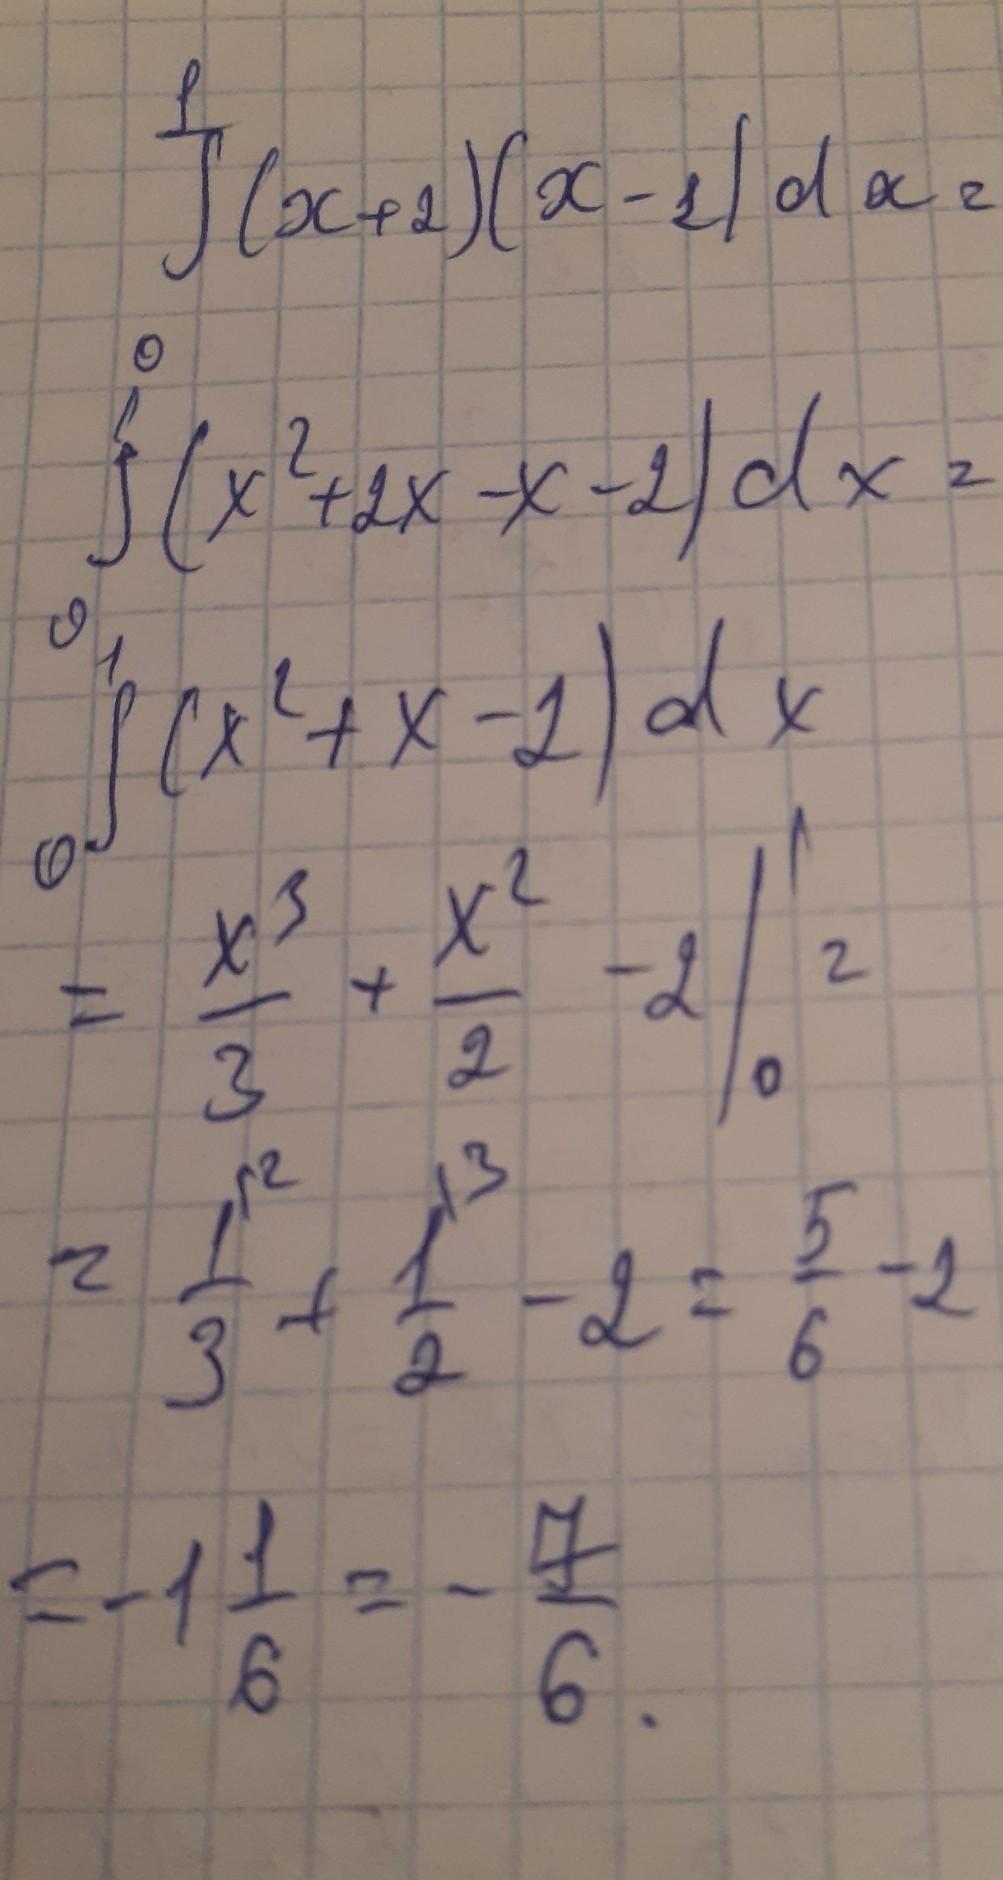 1
∫ (x+2)(x-1) dx =
0
1
∫ (x²+2x-x-2) dx =
0
1
∫ (x²+x-2) dx
0
= x³/3 + x²/2 -2 |₀¹ =
= 1²/3 + 1³/2 - 2 = 5/6 - 2
= -1 1/6 = - 7/6.